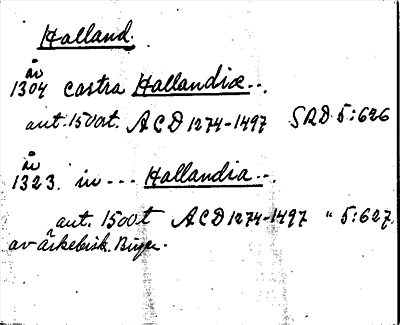 Halland.
år
1304 castra Hallandiæ...
ant. 1500t. ACD 1274-1497 SRD 5:626
år
1323. in --- Hallandia...
ant. 1500t ACD 1274-1497 " 5:627,
av ärkebisk. Birger.